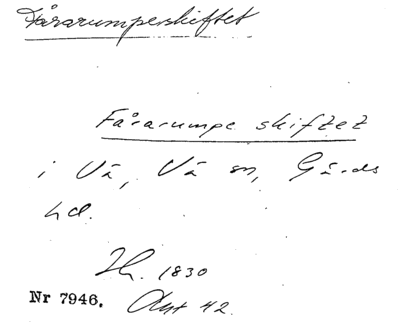 Fårarumperskiftet
Fårarumpe skiftet
i Vä, Vä sn, Gärds
hd.
1830
Nr 7946. Akt 42.